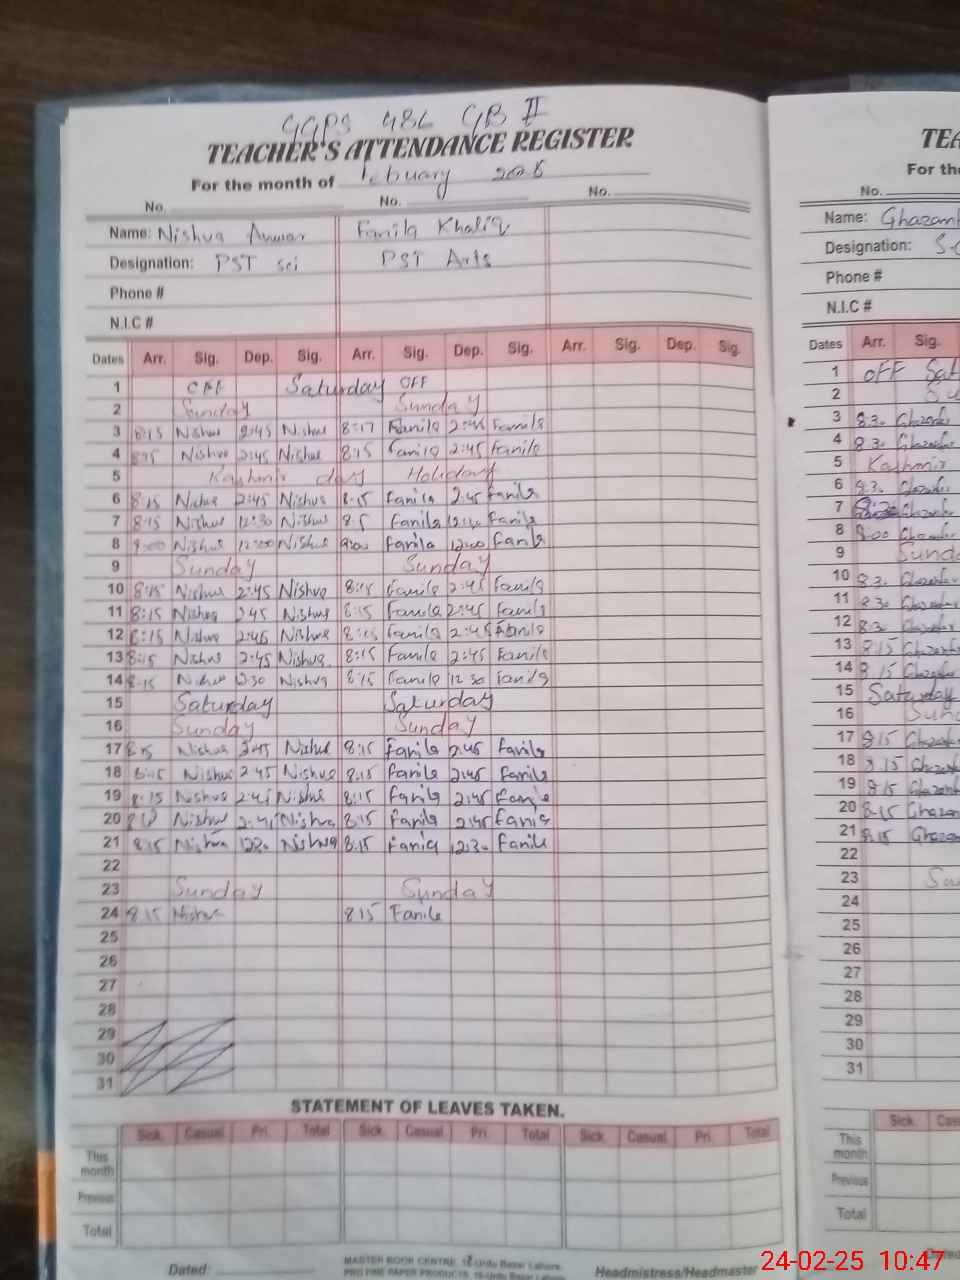 GGPS 48L GB II
TEACHER'S ATTENDANCE REGISTER
For the month of Febuary 2025
No. No. No.
Name: Nishva Anwar Fanila Khaliq
Designation: PST Sci PST Arts
Phone #
N.I.C #
Dates Arr. Sig. Dep. Sig. Arr. Sig. Dep. Sig. Arr. Sig. Dep. Sig.
1 OFF Saturday OFF
2 Sunday Sunday
3 8:15 Nishva 2:45 Nishva 8:17 Fanila 2:45 Fanila
4 8:15 Nishva 2:45 Nishva 8:15 Fanila 2:45 Fanila
5 Kashmir day Holiday
6 8:15 Nishva 2:45 Nishva 8:15 Fanila 2:45 Fanila
7 8:15 Nishva 12:30 Nishva Fanila 12:30 Fanila
8 9:00 Nishva 12:00 Nishva 9:00 Fanila 12:00 Fanila
9 Sunday Sunday
10 8:15 Nishva 2:45 Nishva 8:15 Fanila 2:45 Fanila
11 8:15 Nishva 2:45 Nishva 8:15 Fanila 2:45 Fanila
12 8:15 Nishva 2:45 Nishva 8:15 Fanila 2:45 Fanila
13 8:15 Nishva 2:45 Nishva 8:15 Fanila 2:45 Fanila
14 8:15 Nishva 12:30 Nishva 8:15 Fanila 12:30 Fanila
15 Saturday Saturday
16 Sunday Sunday
17 8:15 Nishva 2:45 Nishva 8:15 Fanila 2:45 Fanila
18 8:15 Nishva 2:45 Nishva 8:15 Fanila 2:45 Fanila
19 8:15 Nishva 2:45 Nishva 8:15 Fanila 2:45 Fanila
20 Nishva 2:45 Nishva 8:15 Fanila 2:45 Fania
21 8:15 Nishva 12:30 Nishva 8:15 Fania 12:30 Fanila
22
23 Sunday Sunday
24 8:15 Nishva 8:15 Fanila
25
26
27
28
29
30
31
STATEMENT OF LEAVES TAKEN.
Sick. Casual Pri. Total Sick. Casual Pri. Total Sick. Casual Pri. Total
This month
Previous
Total
Dated:
MASTER BOOK CENTRE, 15-Urdu Bazar Lahore.
PRO FINE PAPER PRODUCTS, 15-Urdu Bazar Lahore.
Headmistress/Headmaster
TEA
For the
No.
Name: Ghazanf
Designation:
Phone #
N.I.C #
Dates Arr. Sig.
1 OFF Sat
2 Su
3 8:30 Ghazanfer
4 8:30 Ghazanfer
5 Kashmir
6 8:30 Ghazanfer
7 8:30 Ghazanfer
8 9:00 Ghazanfer
9 Sund
10 8:30 Ghazanfer
11 8:30 Ghazanfer
12 8:30 Ghazanfer
13 8:15 Ghazanfer
14 8:15 Ghazanfer
15 Saturday
16 Sund
17 8:15 Ghazanfer
18 8:15 Ghazanfe
19 8:15 Ghazanf
20 8:15 Ghazan
21 8:15 Ghazan
22
23 Su
24
25
26
27
28
29
30
31
Sick. Cas
This month
Previous
Total
Dated
24-02-25 10:47